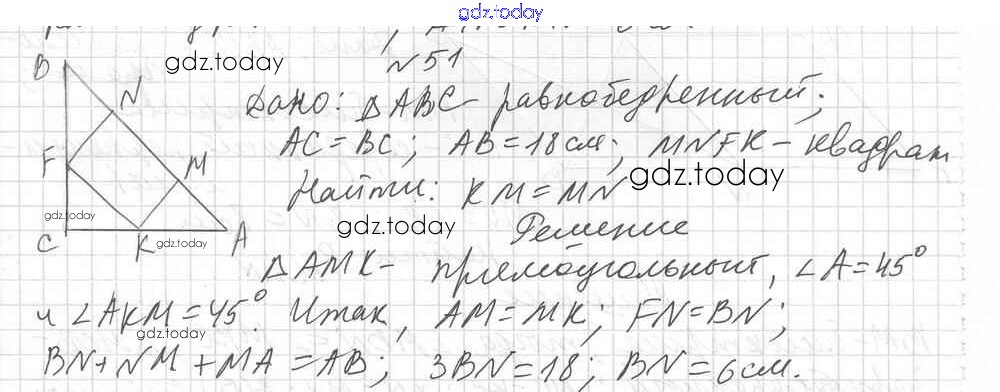 gdz.today
№51
gdz.today
B
N
Дано: △ABC - равнобедренный;
AC = BC; AB = 18 см; MNFK - квадрат
F
M
gdz.today
Найти: KM = MN
gdz.today
gdz.today
C
K
gdz.today
A
Решение
△AMK - прямоугольный, ∠A = 45°
и ∠AKM = 45°. Итак, AM = MK; FN = BN;
gdz.today
BN + NM + MA = AB; 3BN = 18; BN = 6 см.